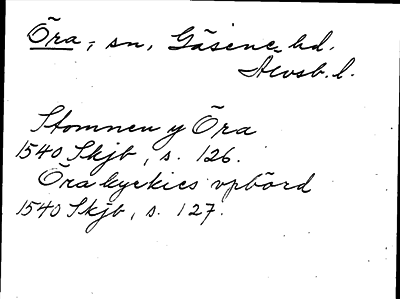 Öra, sn, Gäsene hd.
Älvsb. l.
Stomnen y Öra
1540 Skjb, s. 126.
Öra kyrkies vpbörd
1540 Skjb, s. 127.